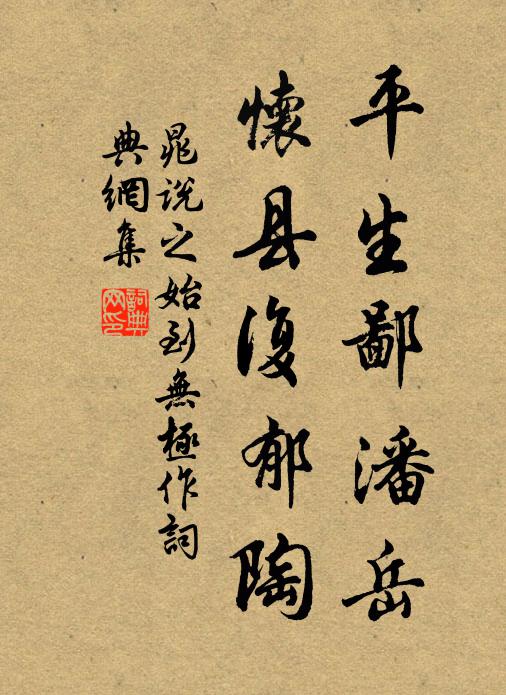 平生鄙潘岳
懷县復郁陶
晁說之始到無極作詞
典網集
詞典
网印